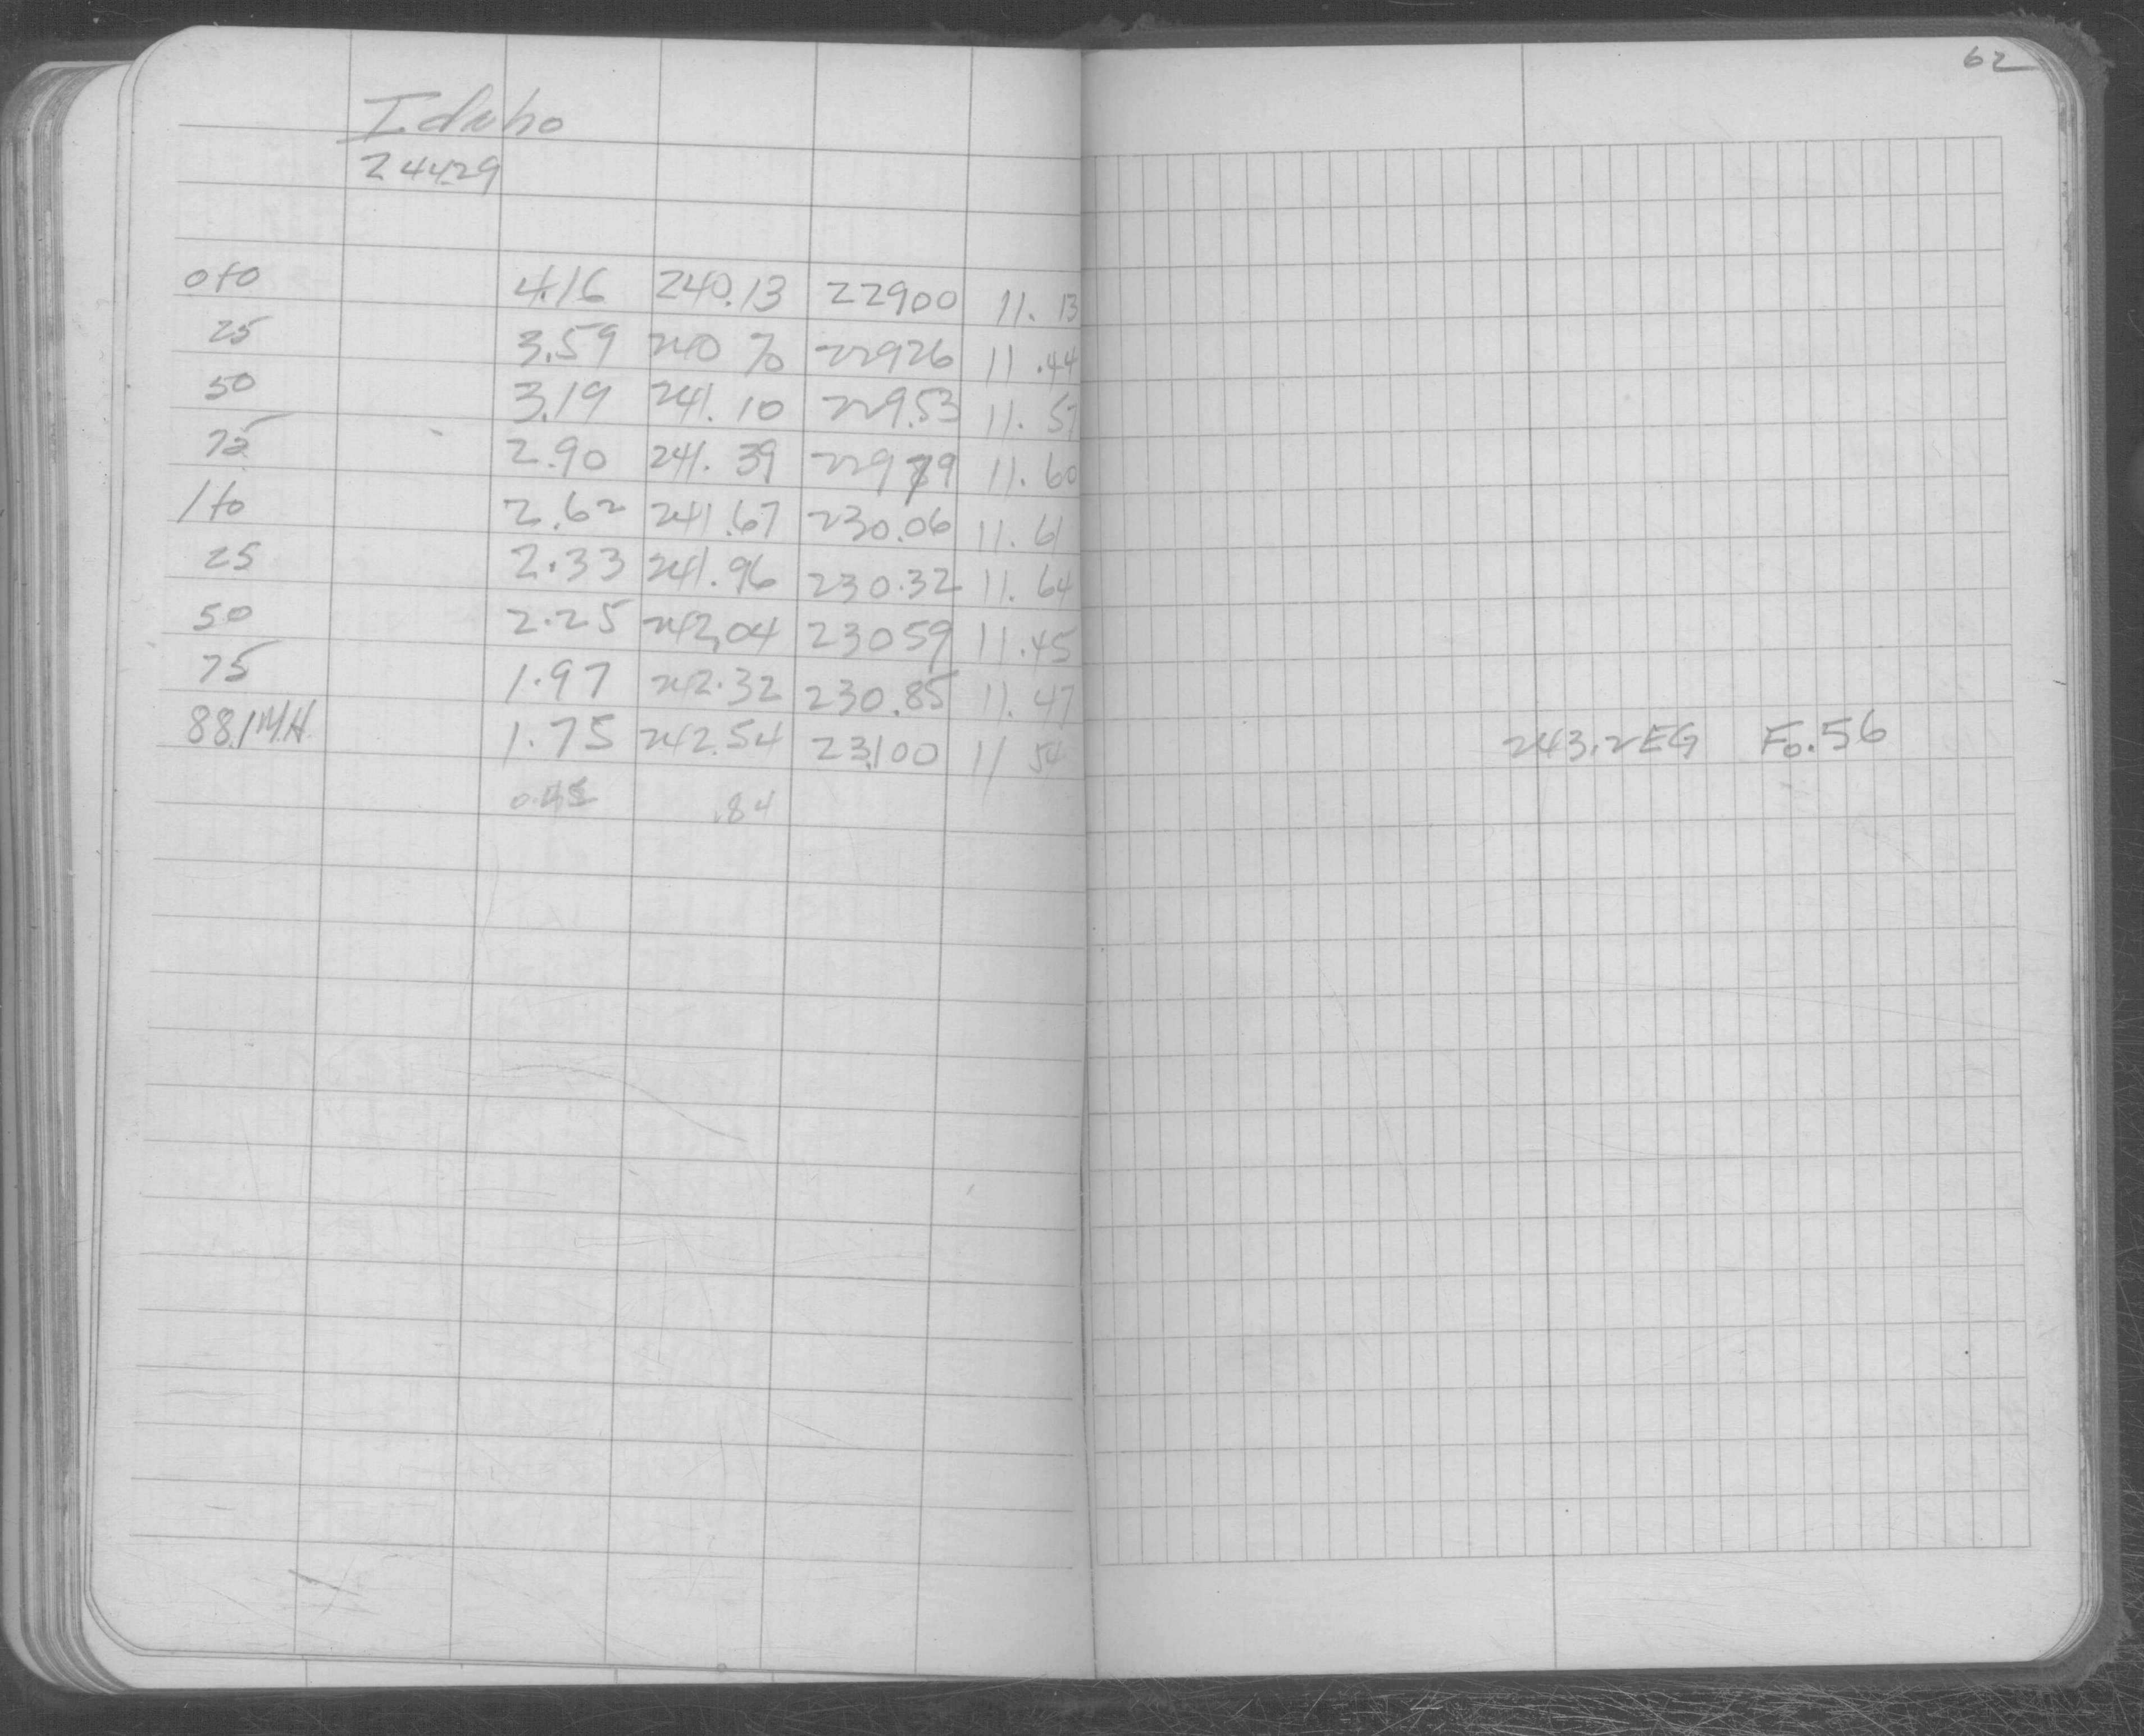 62
Idaho
244.29
0+0 4.16 240.13 22900 11.13
25 3.59 240 70 22926 11.44
50 3.19 241.10 229.53 11.57
75 2.90 241.39 22979 11.60
1+0 2.62 241.67 230.06 11.61
25 2.33 241.96 230.32 11.64
50 2.25 242.04 23059 11.45
75 1.97 242.32 230.85 11.47
88.1 M.H. 1.75 242.54 231.00 11 54 243.2 EG Fo.56
.84